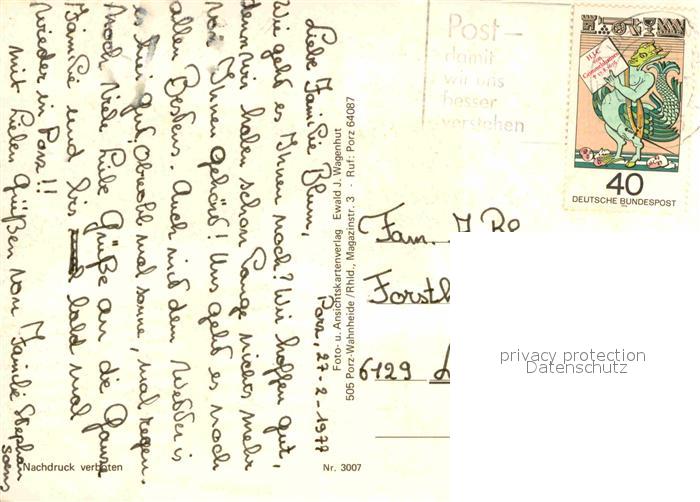 Porz, 27-2-1977
Liebe Familie Blum,
Wie geht es Ihnen noch? Wir hoffen gut,
denn wir haben schon lange nichts mehr
von Ihnen gehört! Uns geht es noch
allen Bestens. Auch mit dem Wetter is
es hier gut, obwohl mal sonne, mal regen.
Noch viele liebe Grüße an die Ganze
Familie und bis bald mal
wieder in Porz!!
mit lieben Grüßen von Familie Stephan
Nachdruck verboten
Nr. 3007
Foto- u. Ansichtskartenverlag Ewald J. Wagenhut
505 Porz-Wahnheide/Rhld., Magazinstr. 3 · Ruf: Porz 64087
Post-
damit
wir uns
besser
verstehen
HJC
von
Grimmelshausen
40
DEUTSCHE BUNDESPOST
Fam.
Forsth
6129
privacy protection
Datenschutz